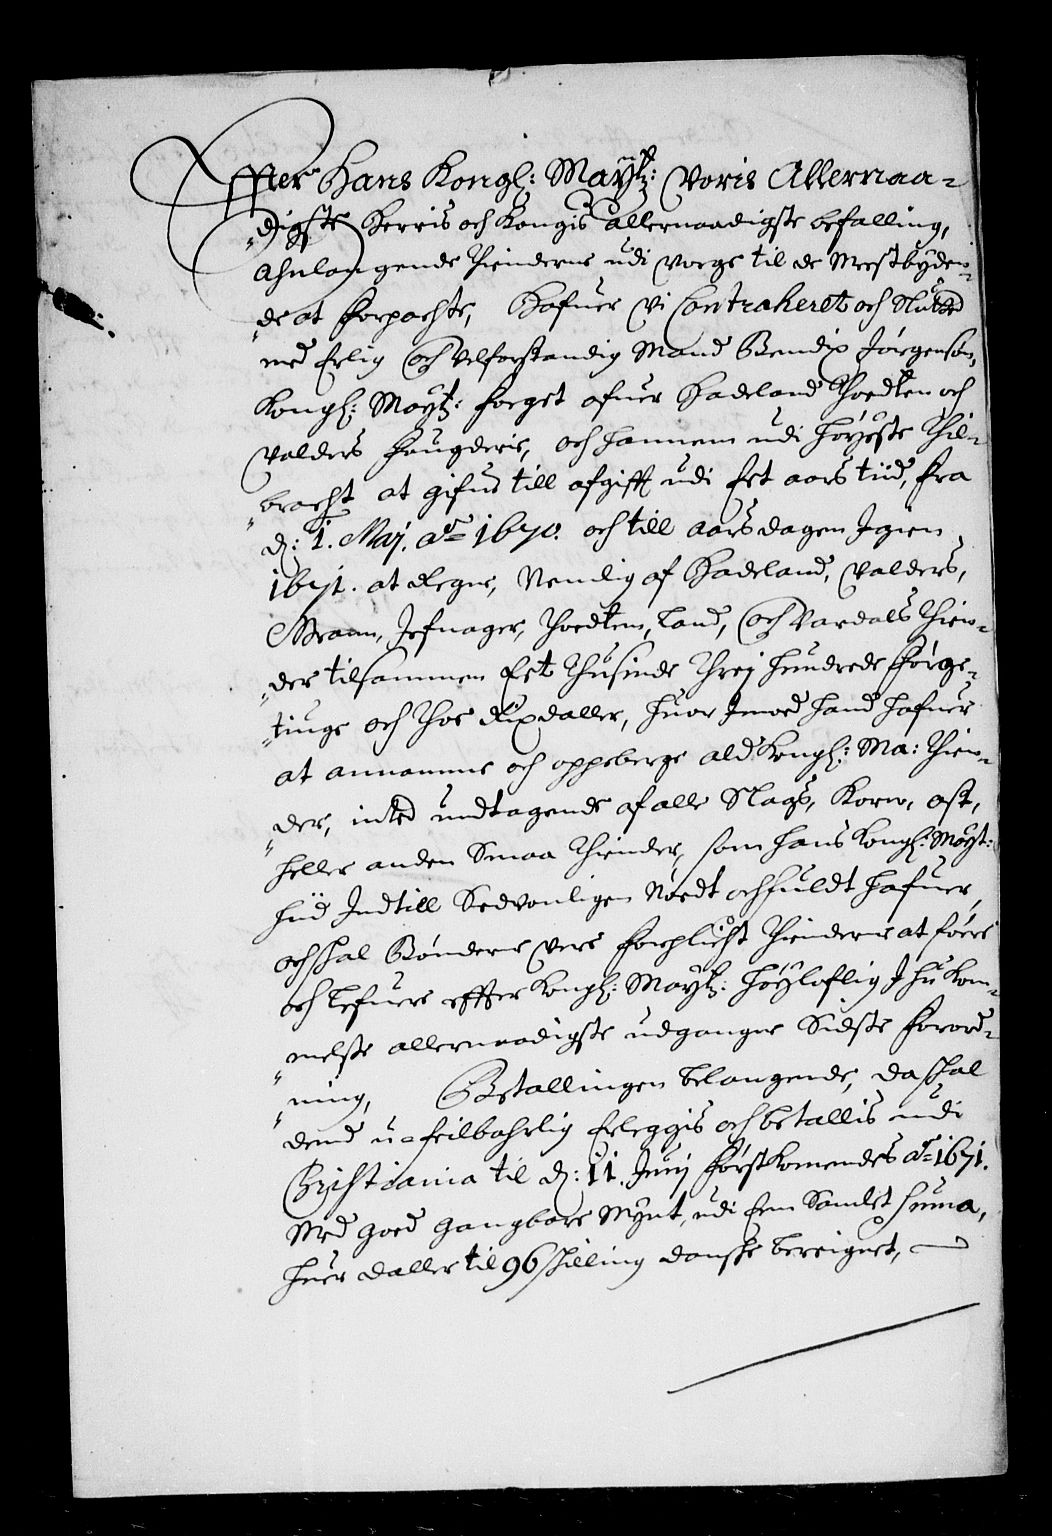 Effter Hans Kongl: Maÿtz: Voris Allernaa-
digste Herris och Kongis allernaadigste befalling,
ahnlangende Thienderne udi Norge til de Meestbyden-
de at forpachte, Hafuer Vi Contraheret och Sluttet
med Erlig och Velforstandig Mand Bendix Jørgensøn,
Kongl: Maÿtz: Foeget ofuer Hadeland Thoedten och
Valders Fougderie, och hannem udi høyeste Thil-
bracht at gifue till afgifft udi Eet aars tiid, fra
d: 1. Maj. Ao 1670. och till Aarsdagen Igien
1671. at Regne, Nemlig af Hadeland, Valders,
Gran, Jefnager, Thoedten, Land, och Vardals Thien-
der tilsammen Eet Thusinde Threj hundrede Førge-
tiuge och Thoe Rixdaller, huor Imod hand hafuer
at annamme och oppeberge ald Kongl: Ma: Thien-
der, inted undtagende af alle Slags, Korn, ost,
heller anden Smaa Thiender, som hans Kongl: Maÿt:
hiid Indtill Sedvonligen Nøedt och fuldt hafuer,
och skal Bønderne vere forplicht Thienderne at føere
och lefuere effter Kongl: Maÿtz: høÿloflig Ihukom-
melse allernaadigste udgangne Sidste forord-
ning, Betallingen belangende, da skal
dend u-feilbahrlig Erleggis och betallis udi
Christiania til d: 11. Junij førstkomendes Ao 1671.
Med goed gangbare Mynt, udi Een Samlet Suma,
huer daller til 96 skilling danske bereignet,